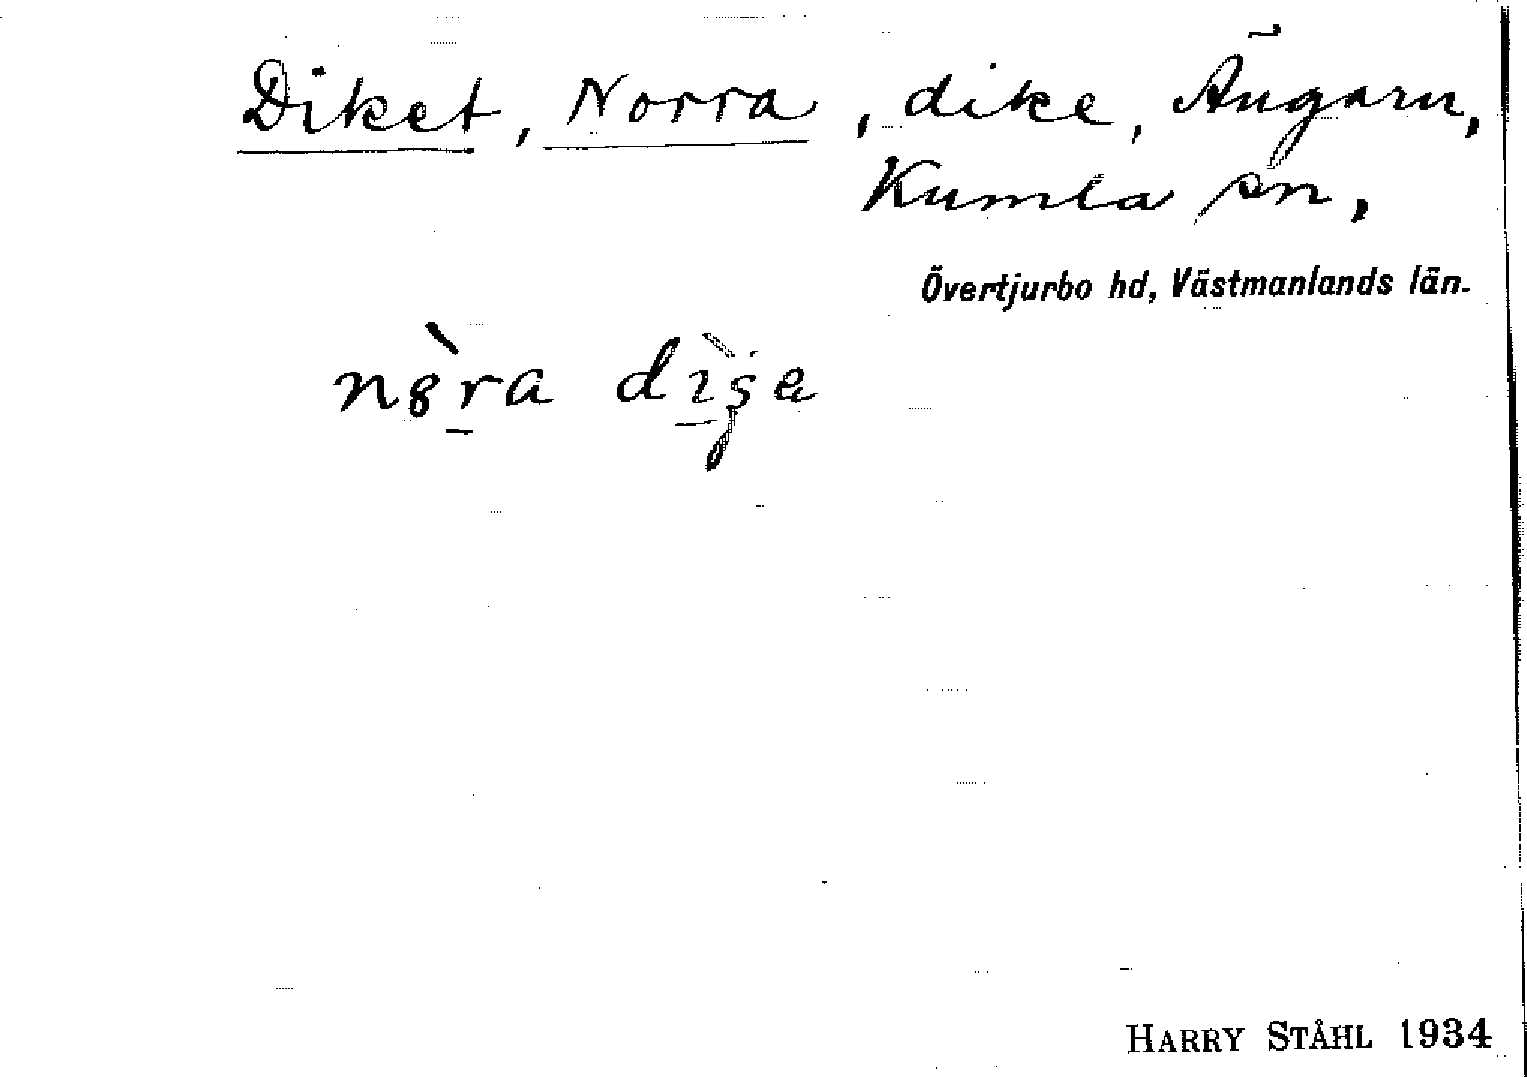 Diket, Norra, dike, Ängarn,
Kumla sn,
Övertjurbo hd, Västmanlands län.
nȣ̀ra dìʒe
HARRY STÅHL 1934